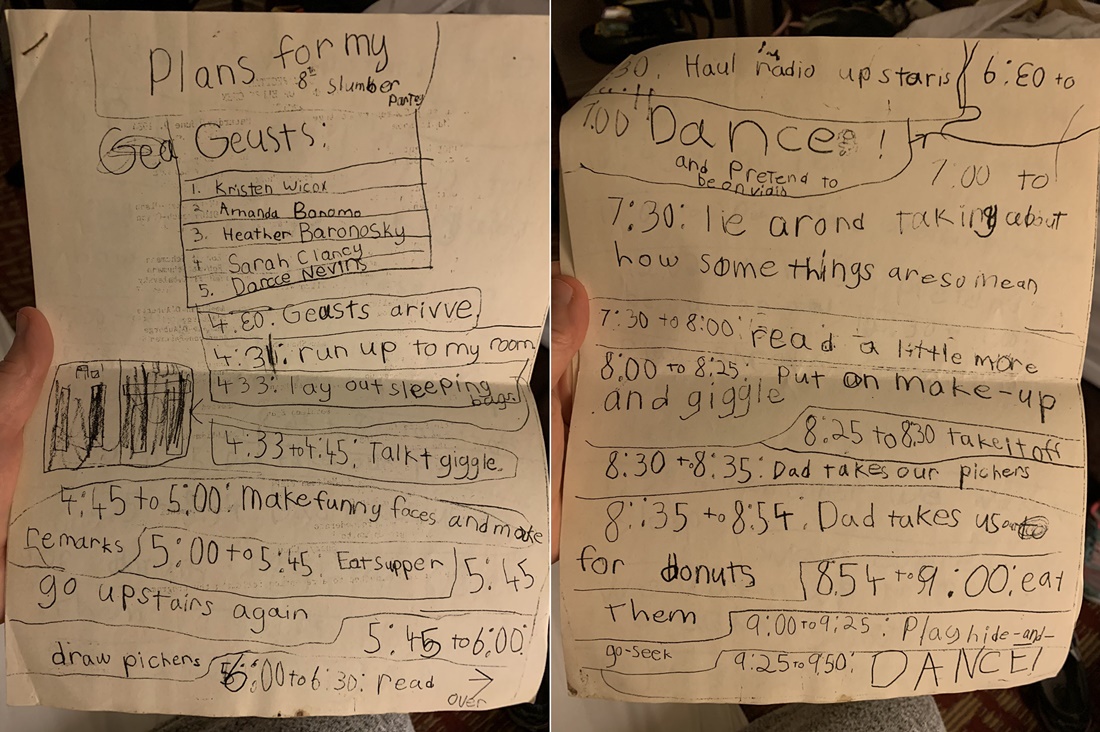 Plans for my
8th slumber
Partey
Gea Geusts:
1. Kristen Wicox
2. Amanda Bonomo
3. Heather Baronosky
4 Sarah Clancy
5. Darcce Nevins
4:30: Geusts arivve
4:31: run up to my room
4:33: lay out sleeping
bags
4:33 to 4:45: Talk + giggle.
4:45 to 5:00: Make funny faces and make
remarks 5:00 to 5:45: Eat supper 5:45
go upstairs again
5:45 to 6:00:
draw pickers 6:00 to 6:30: read
over
:30, Haul my radio up staris 6:30 to
7:00 Dance !
and Pretend to
be on vidio
7:00 to
7:30: lie arond taking about
how some things are so mean
7:30 to 8:00: read a little more
8:00 to 8:25: put on make-up
and giggle
8:25 to 8:30 take it off
8:30 to 8:35: Dad takes our pichers
8:35 to 8:54: Dad takes us
for donuts 8:54 to 9:00: eat
Them 9:00 to 9:25: Play hide-and-
go-seek 9:25 to 9:50: DANCE!